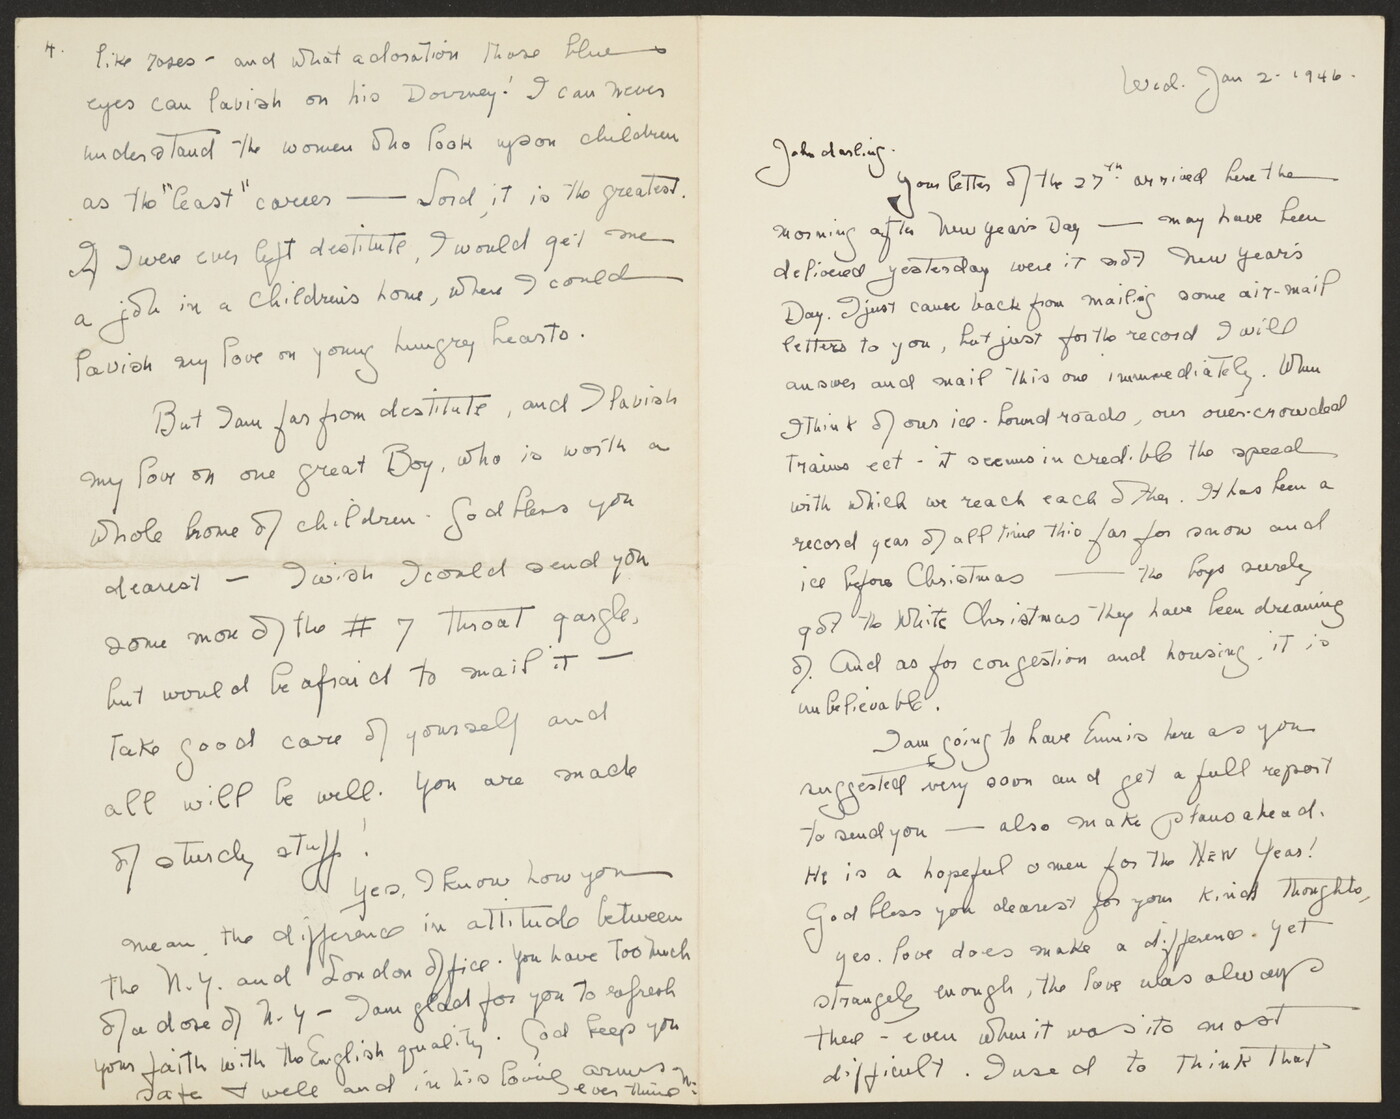 4.
like roses - and what adoration those blue
eyes can lavish on his Downey! I can never
understand the women who look upon children
as the "least" career — Lord, it is the greatest.
If I were ever left destitute, I would get me
a job in a Children's home, where I could
lavish my love on young hungry hearts.
But I am far from destitute, and I lavish
my love on one great Boy, who is worth a
whole home of children. God bless you
dearest — I wish I could send you
some more of the # 7 throat gargle,
but would be afraid to mail it —
Take good care of yourself and
all will be well. You are made
of sturdy stuff!
Yes, I know how you
mean, the difference in attitude between
the N.Y. and London office. You have too much
of a dose of N.Y - I am glad for you to refresh
your faith with the English quality. God keep you
safe & well and in his loving arms
ever thine N.
Wed. Jan 2 - 1946.
John darling.
Your letter of the 27th. arrived here the
morning after New Year's Day — may have been
delivered yesterday were it not New Year's
Day. I just came back from mailing some air-mail
letters to you, but just for the record I will
answer and mail this one immmediately. When
I think of our ice-bound roads, our over-crowded
trains ect - it seems incredible the speed
with which we reach each other. It has been a
record year of all time this far for snow and
ice before Christmas — the boys surely
got the White Christmas they have been dreaming
of. And as for congestion and housing, it is
unbelievable.
I am going to have Ennis here as you
suggested very soon and get a full report
to send you — also make plans ahead.
He is a hopeful omen for the NEW Year!
God bless you dearest for your kind thoughts,
yes. love does make a difference. Yet
strangely enough, the love was always
there - even when it was its most
difficult. I used to think that